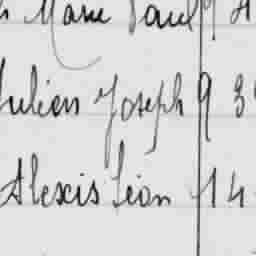 Marie Paul 9
Julien Joseph 9 3
Alexis Léon 14